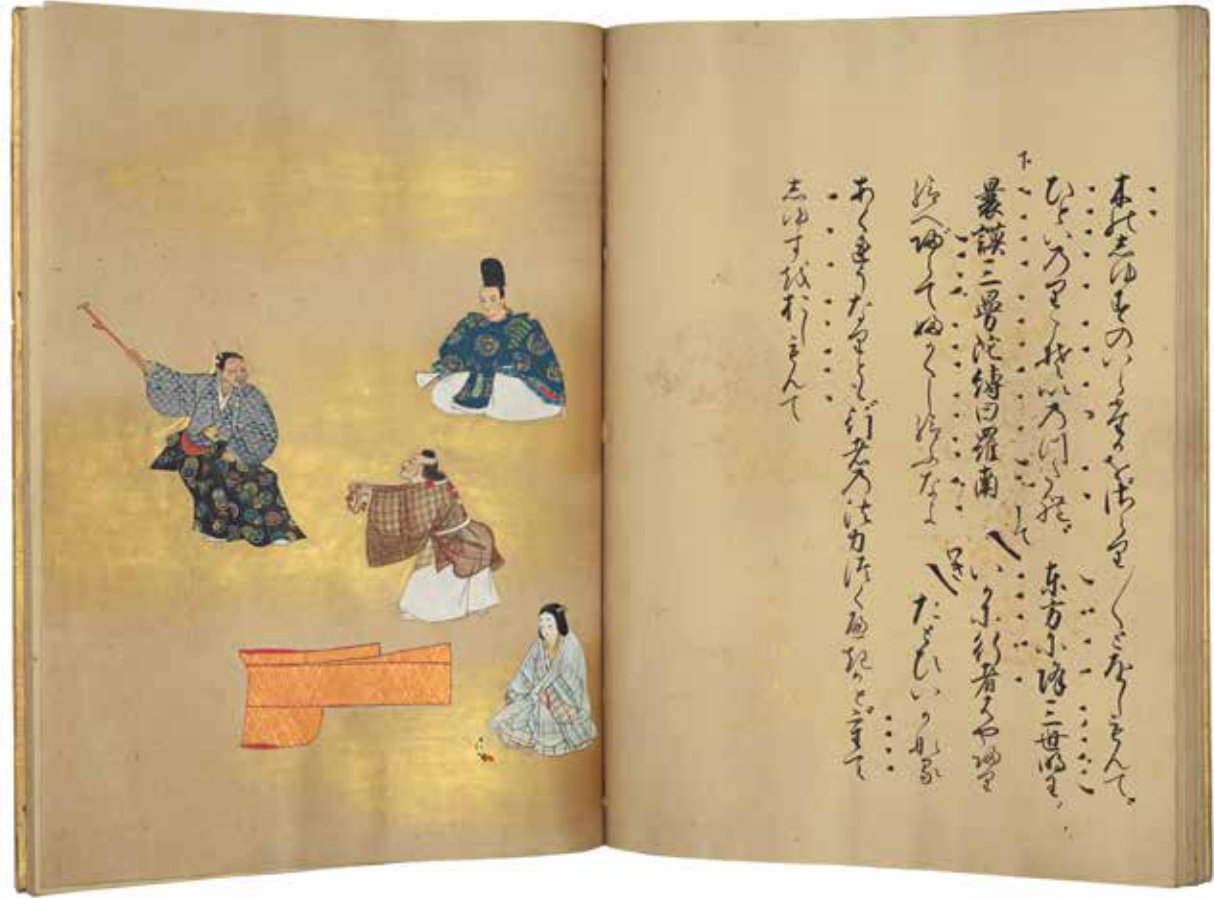 木のしゆすのいらたかをさらり〳〵とおしもんて
ひといのりこそいのつたれ 東方に降三世明王
下 曩謨三曼陀縛曰羅南 して いかに行者はや帰り
給へ帰らてふかくし給ふなよ わき たとひいかなる
あくりやうなりとも行者の法力つくへきかと重て
しゆすをおしもんて